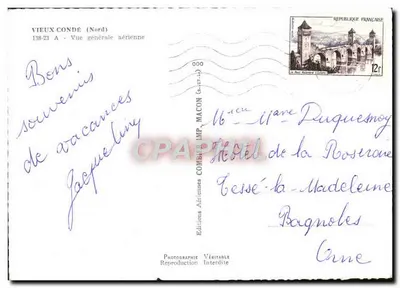 VIEUX CONDÉ (Nord)
138-23 A - Vue générale aérienne
Bons
souvenirs
de vacances
Jacqueline
Editions Aériennes COMBIER IMP. MACON
PHOTOGRAPHIE VÉRITABLE
Reproduction Interdite
REPUBLIQUE FRANÇAISE
12F
Duquesnoy
Hôtel de la Roseraie
Tessé-la-Madeleine
Bagnoles
Orne